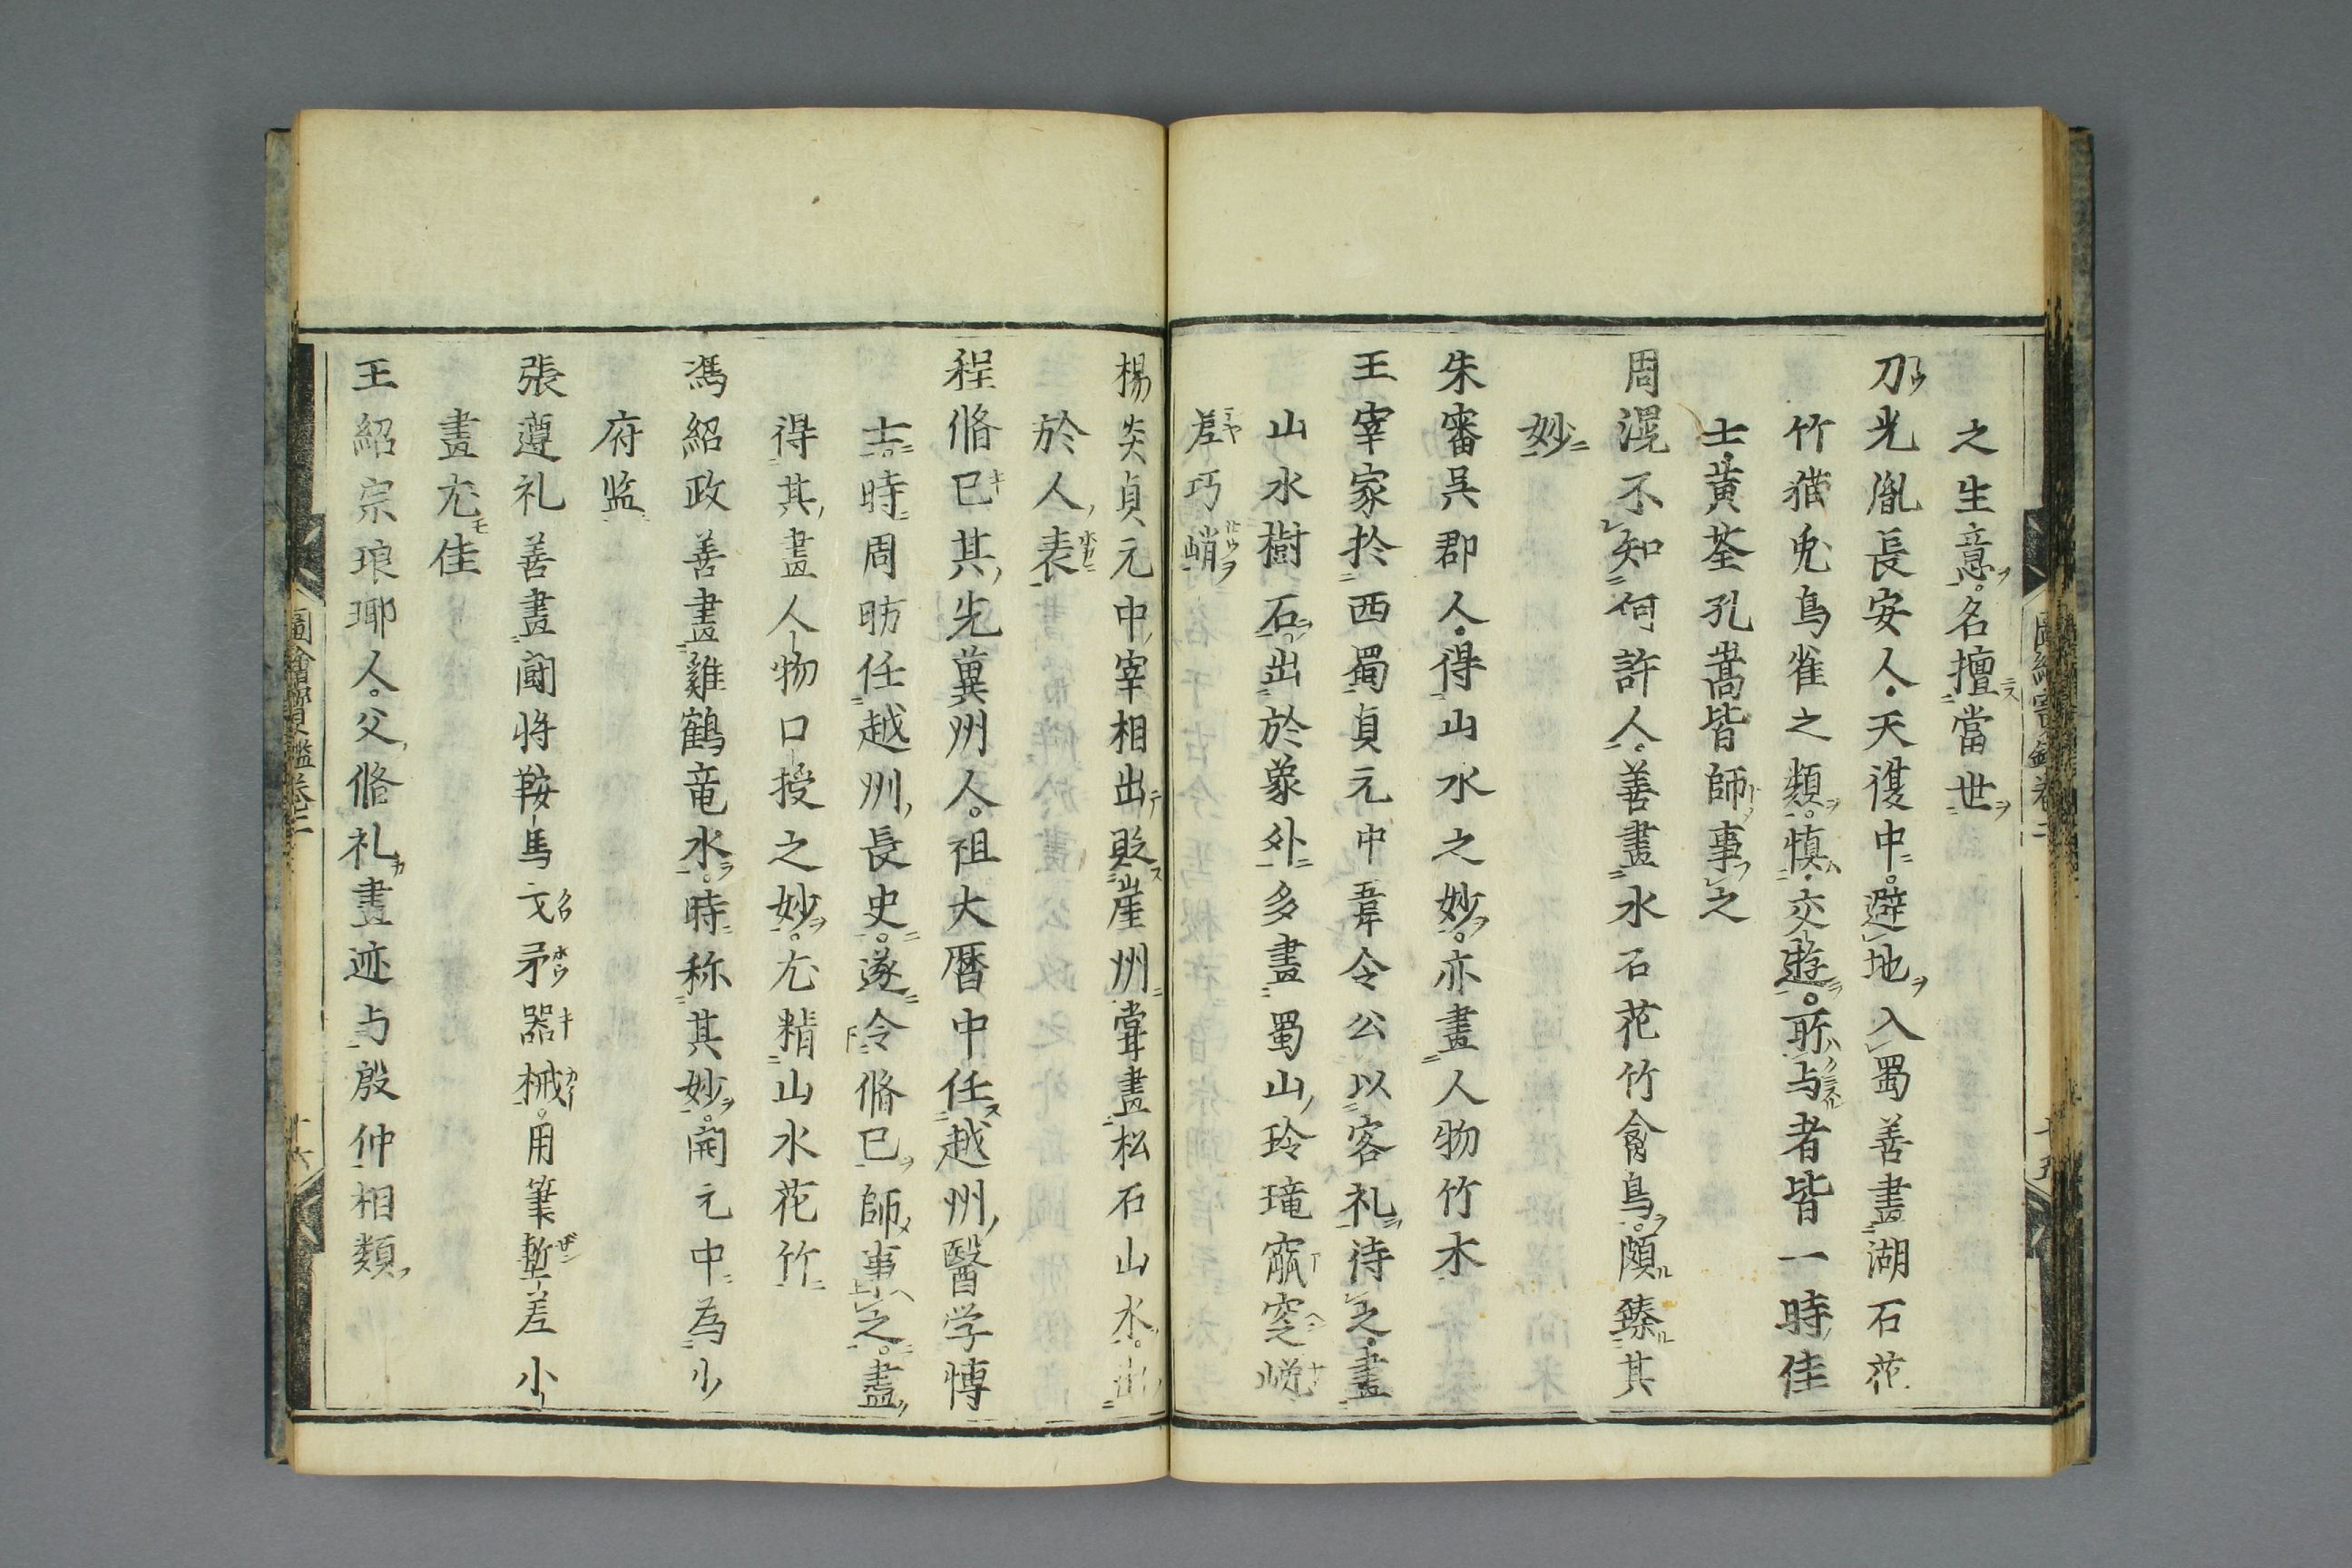 之生意名擅當世
刀光胤長安人天復中避地入蜀善畫湖石花
竹猫兎鳥雀之類慎交遊所与者皆一時佳
士黄荃孔嵩皆師事之
周滉不知何許人善畫水石花竹禽鳥頗臻其
妙
朱審吳郡人得山水之妙亦畫人物竹木
王宰家於西蜀貞元中韋令公以客礼待之畫
山水樹石出於象外多畫蜀山玲瓏窳窆嵯
差巧峭
楊炎貞元中宰相出貶崖州嘗畫松石山水出
於人表
程脩已其先冀州人祖大曆中任越州醫学博
士時周昉任越州長史遂令脩已師事之盡
得其畫人物口授之妙尤精山水花竹
馮紹政善畫雞鶴竜水時称其妙開元中為少
府监
張遵礼善畫闘将鞍馬戈矛器械用筆塹差小
畫尤佳
王紹宗琅瑘人父脩礼畫迹与殷仲相類
圖繪寳鑑卷二
十六